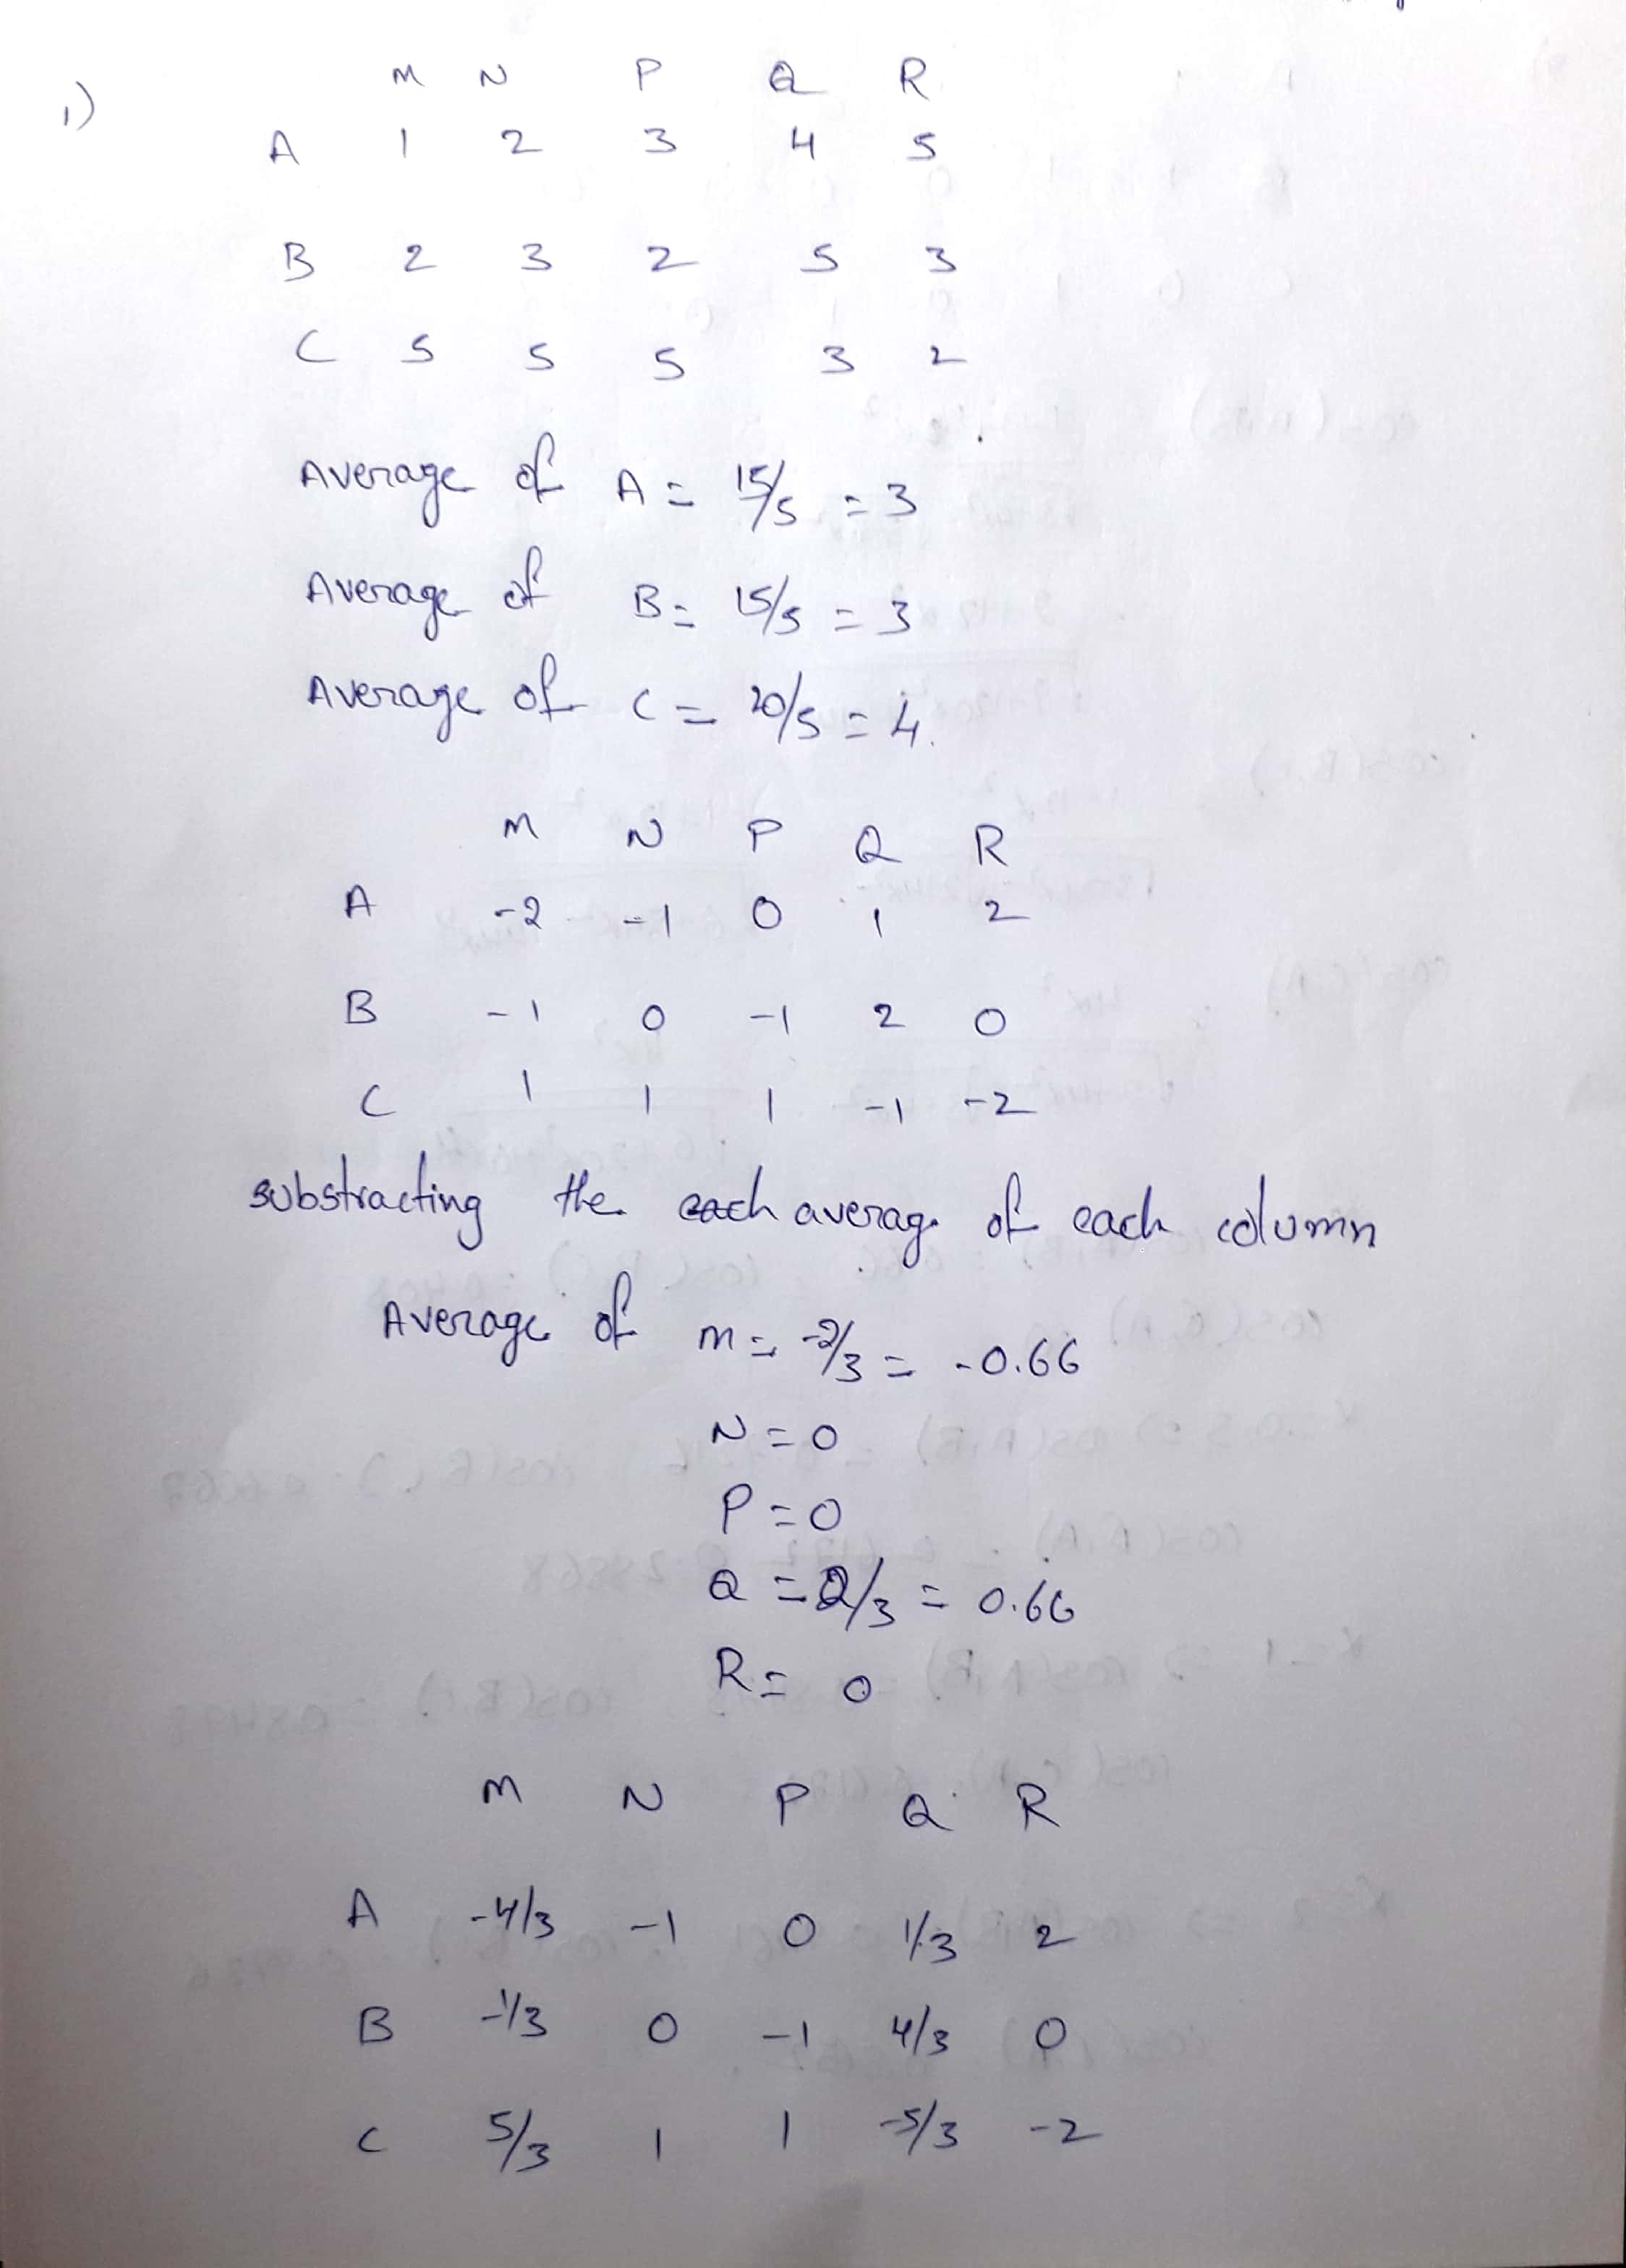 1)
M N P Q R
A 1 2 3 4 5
B 2 3 2 5 3
C 5 5 5 3 2
Average of A = 15/5 = 3
Average of B = 15/5 = 3
Average of C = 20/5 = 4.
M N P Q R
A -2 -1 0 1 2
B -1 0 -1 2 0
C 1 1 1 -1 -2
substracting the each average of each column
Average of M = -2/3 = -0.66
N = 0
P = 0
Q = 2/3 = 0.66
R = 0
M N P Q R
A -4/3 -1 0 1/3 2
B -1/3 0 -1 4/3 0
C 5/3 1 1 -5/3 -2